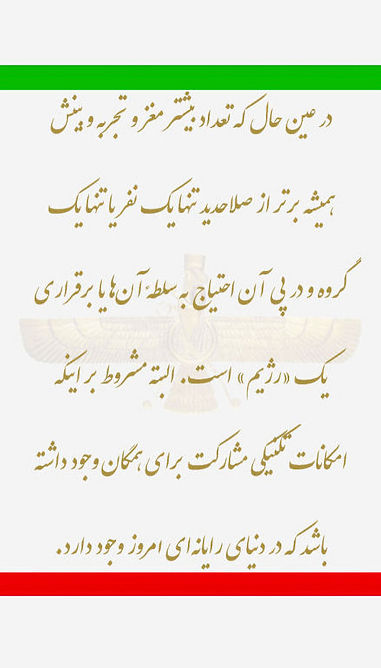 در عین حال که تعداد بیشتر مغز و تجربه و بینش
همیشه برتر از صلاحدید تنها یک نفر یا تنها یک
گروه و در پی آن احتیاج به سلطهٔ آن‌ها یا برقراری
یک «رژیم» است. البته مشروط بر اینکه
امکانات تکنیکی مشارکت برای همگان وجود داشته
باشد که در دنیای رایانه‌ای امروز وجود دارد.